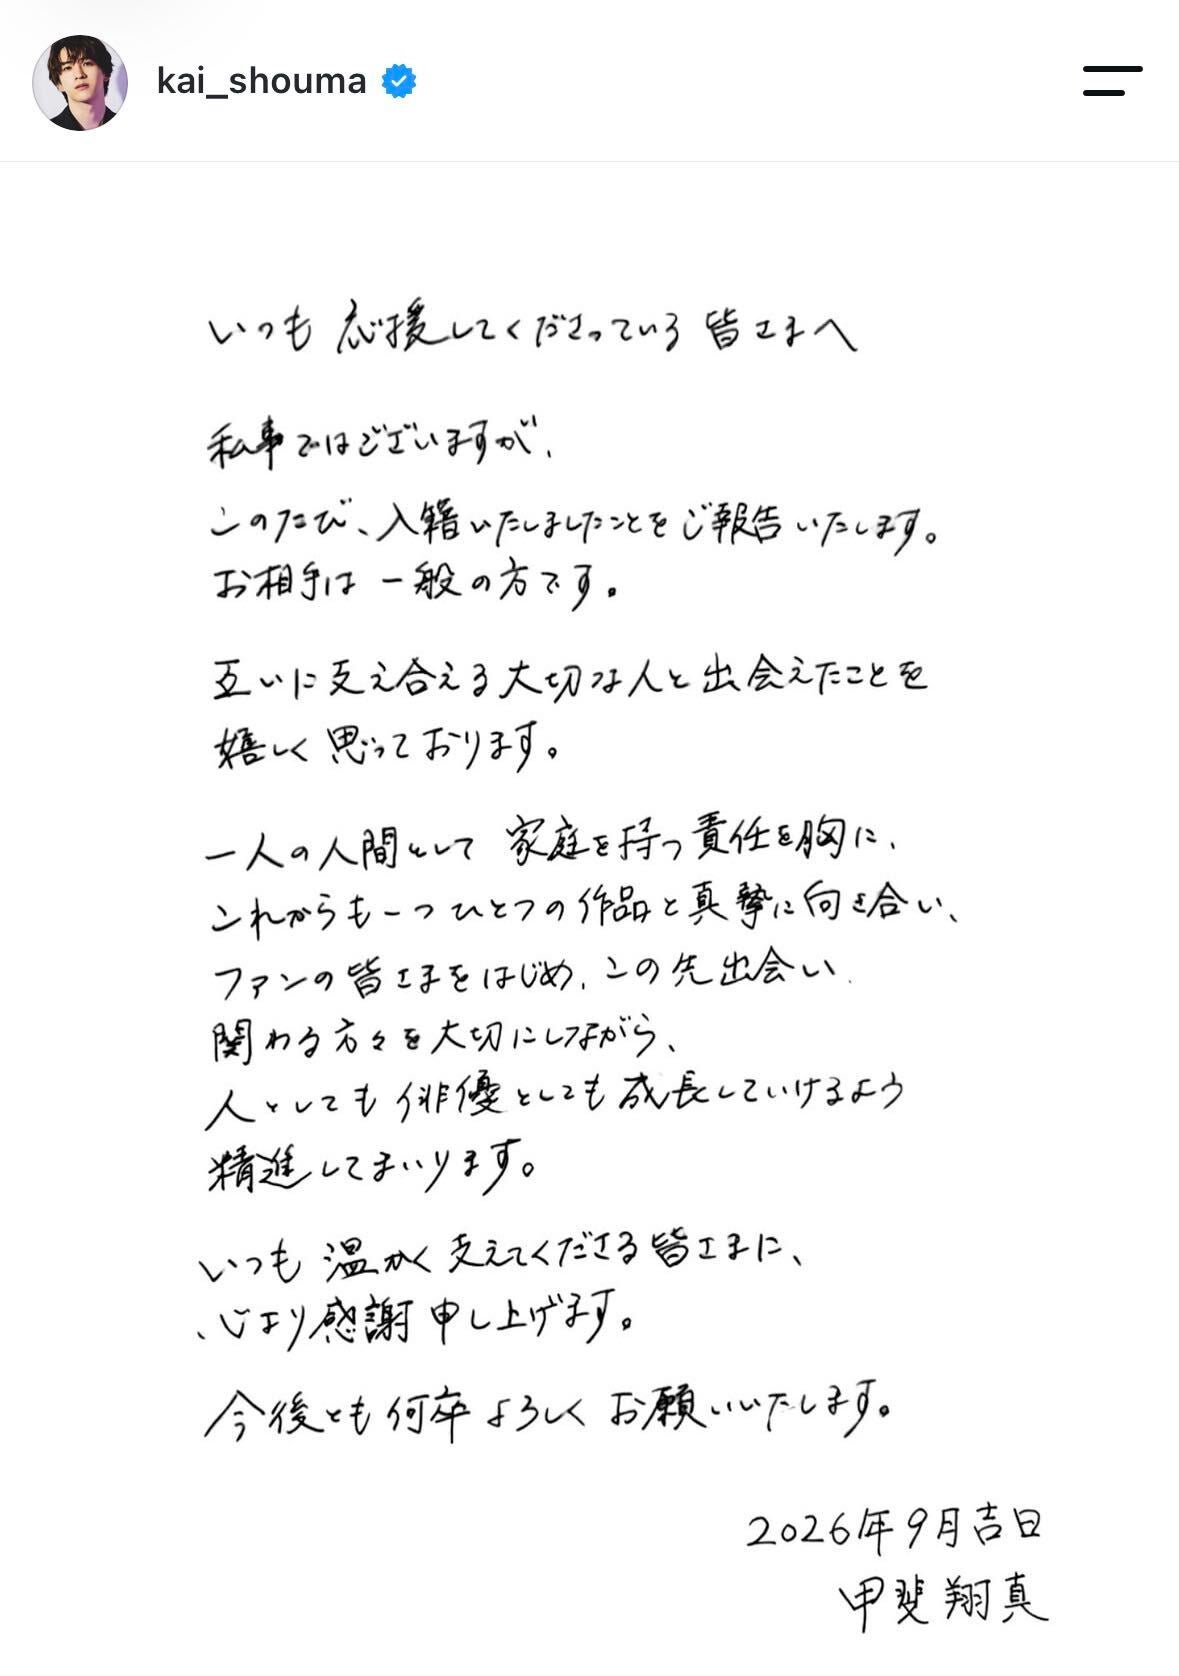 kai_shouma
いつも応援してくださっている皆さまへ
私事ではございますが、
このたび、入籍いたしましたことをご報告いたします。
お相手は一般の方です。
互いに支え合える大切な人と出会えたことを
嬉しく思っております。
一人の人間として家庭を持つ責任を胸に、
これからも一つひとつの作品と真摯に向き合い、
ファンの皆さまをはじめ、この先出会い、
関わる方々を大切にしながら、
人としても俳優としても成長していけるよう
精進してまいります。
いつも温かく支えてくださる皆さまに、
心より感謝申し上げます。
今後とも何卒よろしくお願いいたします。
2026年9月吉日
甲斐翔真